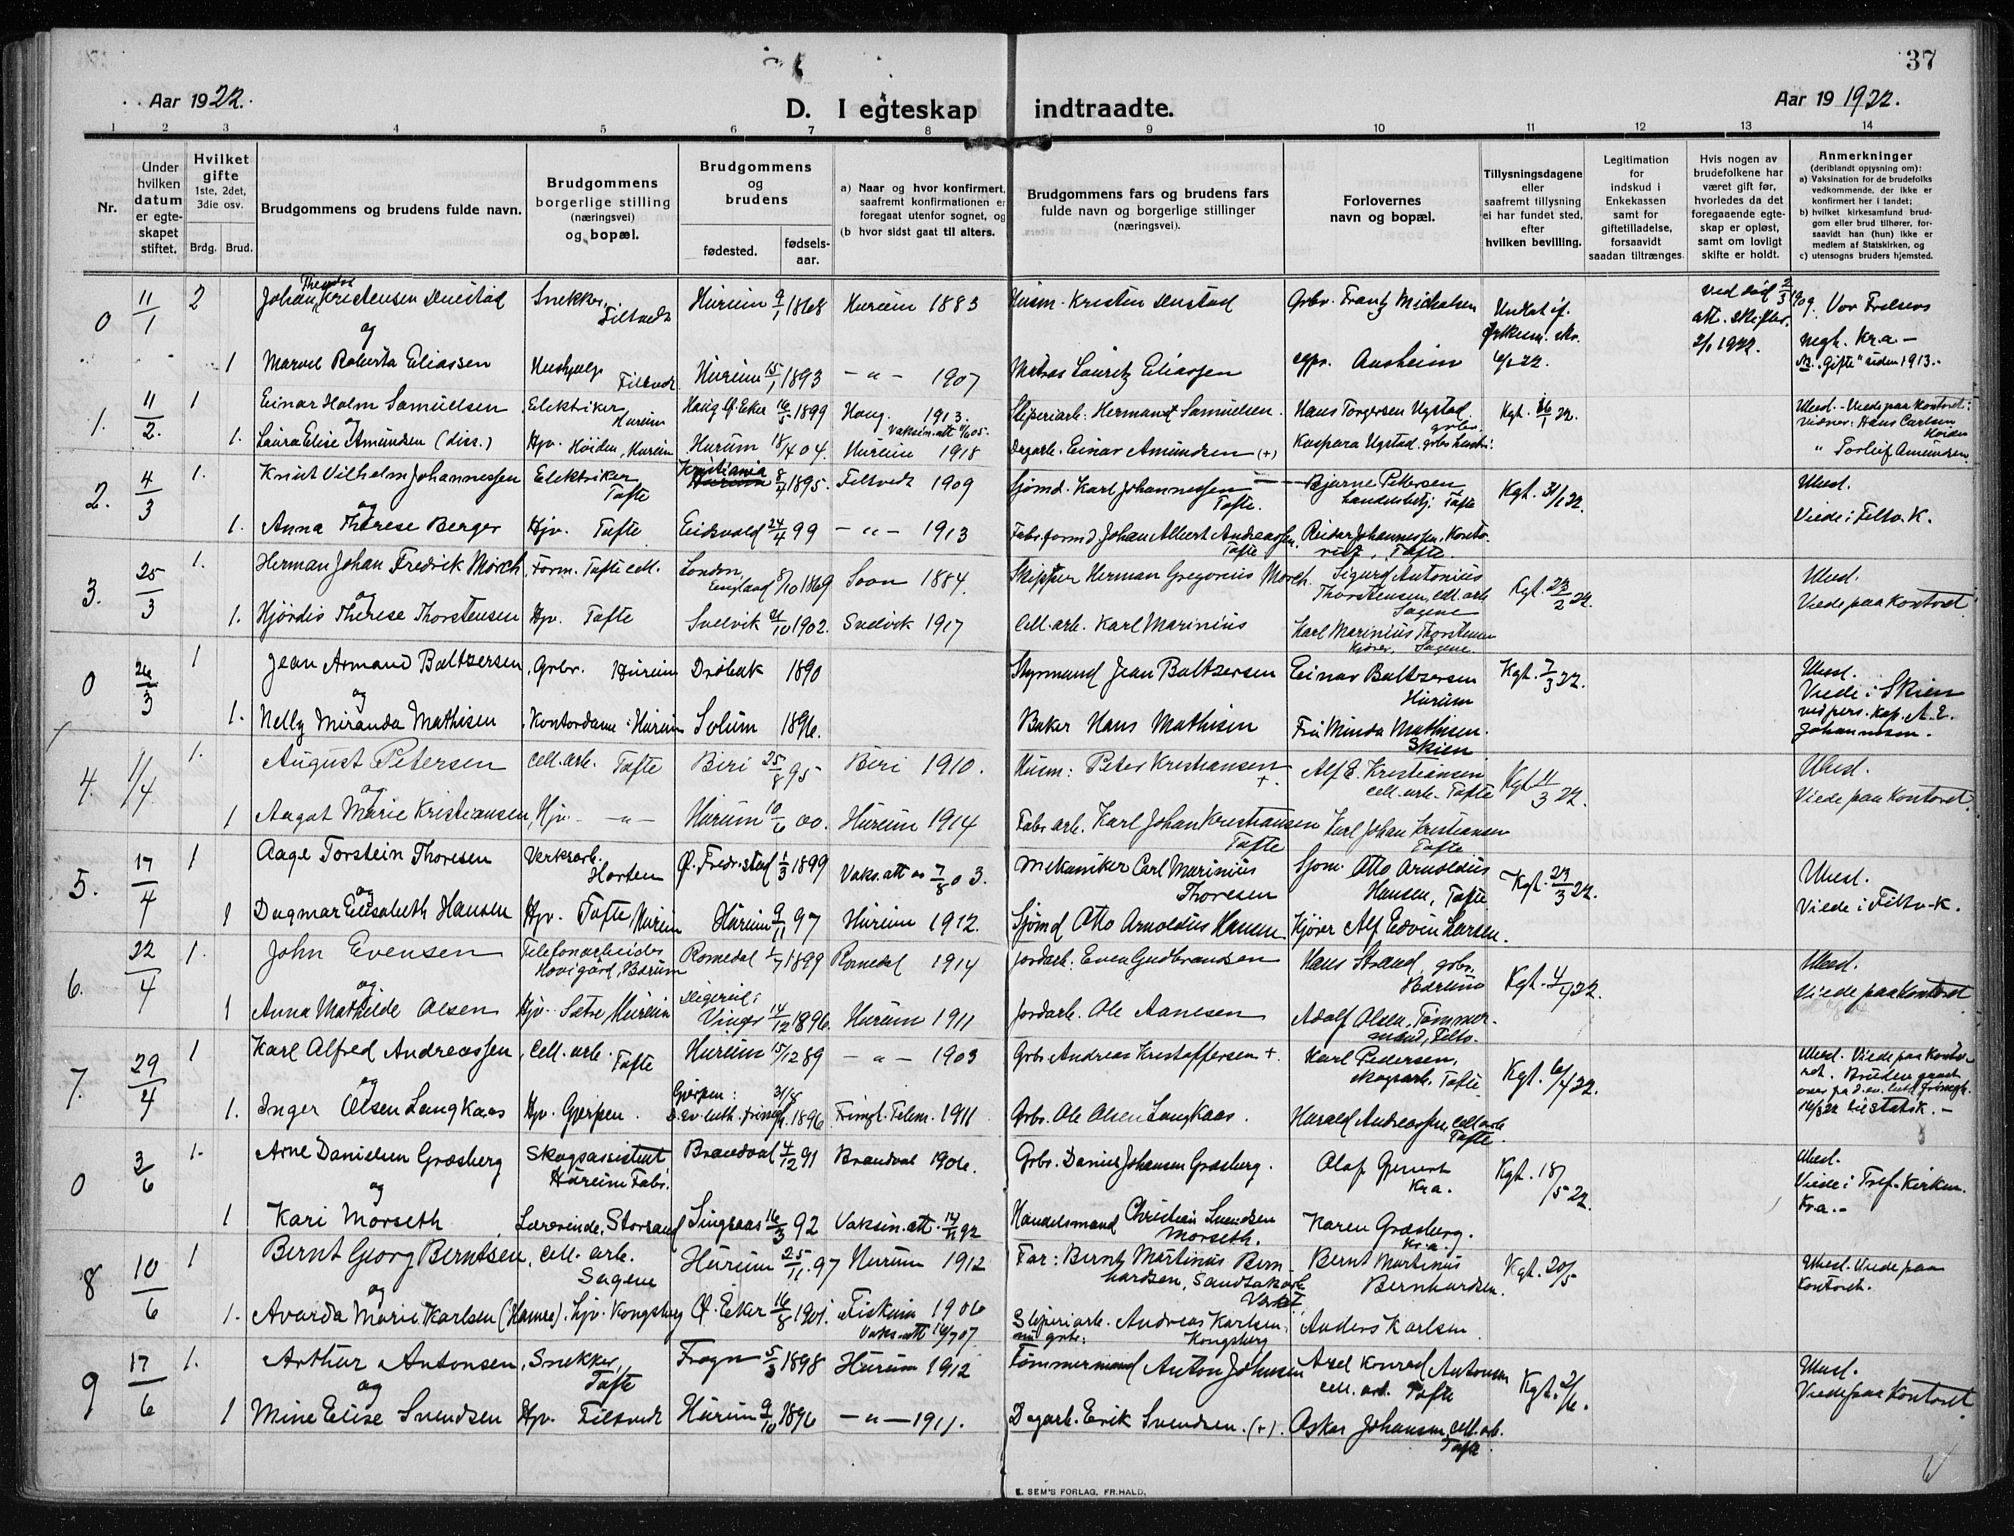 37
Aar 1922.
D. I egteskap indtraadte.
Aar 19 1922.
1 2 3 4 5 6 7 8 9 10 11 12 13 14
Nr.
Under hvilken datum er egteskapet stiftet.
Hvilket gifte 1ste, 2det, 3die osv.
Brdg. Brud.
Brudgommens og brudens fulde navn.
Brudgommens borgerlige stilling (næringsvei) og bopæl.
Brudgommens og brudens
fødested. fødselsaar.
a) Naar og hvor konfirmert, saafremt konfirmationen er foregaat utenfor sognet, og
(b hvor sidst gaat til alters.
Brudgommens fars og brudens fars fulde navn og borgerlige stillinger (næringsvei).
Forlovernes navn og bopæl.
Tillysningsdagene eller saafremt tillysning ei har fundet sted, efter hvilken bevilling.
Legitimation for indskud i Enkekassen samt for giftetilladelse, forsaavidt saadan tiltrænges.
Hvis nogen av brudefolkene har været gift før, hvorledes da det foregaaende egteskap er opløst, samt om lovligt skifte er holdt.
Anmerkninger (deriblandt opjysning om):
a) Vaksination for de brudefolks vedkommende, der ikke er konfirmert her i landet;
b) hvilket kirkesamfund brudgom eller brud tilhører, forsaavidt han (hun) ikke er medlem af Statskirken, og
c) utensogns bruders hjemsted.
0 11/1 2 Johan Kristensen Snekker, Filtvedt Hurum 9/1 1868 Hurum 1883 Husm. Kristen Grbr. Frantz Michelsen ved død 2/3 1909 Vor Frelsers
og
att. skifter. 2/1 1922. megh. Kra - NB. "Gifte" siden 1913.-
1 Marvel Roberta Eliassen Filtvedt Hurum 15/1 1893 - " - 1907 Matros Lauritz Eliassen 6/1 22
1. 11/2. 1 Einar Holm Samuelsen Elektriker, Hurum Haug Ø. Eker 16/5 1899 Haug. 1913. Vaksin.att 11/6 05. Sliperiarb. Hermand Samuelsen. Hans Torgersen Ugstad. grbr. Kgt. 26/1 22. Uhed. - Viede paa kontoret: Vidner: Hans Carlsen
og
1. Laura Elise Amundsen (diss.) Hjv. Hurum Hurum 18/4 04. Hurum 1918 Dagarb. Einar Amundsen (+) Kaspara Ugstad, grbs hustr: " Torleif Amundsen.
2. 4/3 1. Knut Vilhelm Johannessen Elektriker Tofte Kristiania 8/4 1895. Filtvedt 1909 Sjømd. Karl Johannessen Tofte. Bjarne Petersen Tofte Kgt. 31/1 22. Uhed.
og
1. Anna Therese Berger Hjv. Tofte Eidsvold 24/4 99 - " - 1913 Fabr.formd. Johan Albert Andreassen. Tofte Reidar Johannessen, Kontorist, Tofte Viede i Filtv. K.
3. 25/3 1. Herman Johan Fredrik Mørch, Form. Tofte cell. London, England 8/10 1869 Soon 1884. Skipper Herman Gregorius Mørch. Sigurd Antonius Thorstensen, cell. arb. Sagene Kgt. 23/2 22. Uhed.
og
1. Hjørdis Therese Thorstensen Hjv. Tofte Svelvik 1902. Svelvik 1917 Cell. arb. Karl Marinius Karl Marinius Thorstensen Kjører, Sagene. Viede paa kontoret
0 26/3 1 Jean Armand Baltzersen, Grbr. Hurum Drøbak 1890 Styrmand Jean Baltzersen Einar Baltzersen Hurum Kgt. 7/3 22. Uhed. Viede i Skien
og
1. Nelly Miranda Mathisen, Kontordame i Hurum Solum 1896. Baker Hans Mathisen Fru Minda Mathisen. Skien ved pers. kap. A. E. Johannesen.
4. 1/4 1. August Petersen cell. arb. Tofte Biri 25/8 95 Biri 1910. Husm: Peter Kristiansen + Alf E. Kristiansen cell. arb. Tofte Kgt. 11/3 22. Uhed.
og
1 Aagot Marie Kristiansen, Hjv. - " - Hurum 10/6 00. Hurum 1914 Fabr. arb. Karl Johan Kristiansen Tofte Karl Johan Kristiansen Tofte Viede paa kontoret.
5. 17/4 1 Aage Torstein Thoresen Verksarb. Horten Ø. Fredr.stad 1/3 1899 Vaks. att av 7/8 03. Mekaniker Carl Marinius Thoresen Sjøm. Otto Arnoldius Hansen, Tofte Kgt. 23/3 22. Uhed.
og
1 Dagmar Elisabeth Hansen Hjv. Tofte, Hurum Hurum 9/11 97 Hurum 1912. Sjømd Otto Arnoldius Hansen Kjører Alf Edvin Larsen. Viede i Filtv. K.
6. 22/4 1. John Evensen Telefonarbeider Høvigård, Bærum Romedal 1/7 1899 Romedal 1914 Jordarb. Even Gudbrandsen Hans Strand, grbr. Kgt. 4/4 22. Uhed.
og
1 Anna Mathilde Olsen Hjv. Sætre Hurum Vinger 14/12 1896. Hurum 1911 Jordarb. Ole Aanesen Adolf Olsen, Tømmermand, Filtv. Viede paa kontoret
7. 29/4 1 Karl Alfred Andreassen, cell. arb. Tofte Hurum 15/12 89 - " - 1903 Grbr. Andreas Kristoffersen +. Karl Pedersen, skogsarb. Tofte Kgt. 6/4 22. Uhed. Viede paa kontoret. Bruden gaaet
og
1. Inger Olsen Langkaas Hjv. Gjerpen. Gjerpen: 31/8 D. ev. luth. frimgh. 1896 Frimgh. Telem. 1911 Grbr. Ole Olsen Langkaas. Harald Andreassen, cell. arb Tofte over fra d. ev. luth. frimgh. 16/3 22 til statsk. -
0 3/6 1. Arne Danielsen Græsberg Skogsassistent Hurum Fabr. Brandval 4/12 91 Brandval 1906. Grbr. Daniel Johansen Græsberg. Olaf Kra. Kgt. 18/5 22. Uhed. Viede i Tref. Kirken. Kra.-
og
1 Kari Morseth Lærerinde, Storsand Singsaas 16/3 92 Vaksin. att. 14/11 92 Handelsmand Christian Svendsen Morseth. Karen Græsberg. Kra.
8 10/6 1 Bernt Georg Berntsen, cell. arb. Sagene Hurum 25/11. 97 Hurum 1912 Far: Bernt Martinius Bernhardsen, Sandtakarb. Bernt Martinius Bernhardsen. Kgt. 20/5 Uhed. Viede paa kontoret.
og
1. Avarda Marie Karlsen (Hamre). Hjv. Kongsberg Ø. Eker 16/8 1901. Fiskum 1906 Vaks. att 16/7 07. Sliperiarb. Andreas Karlsen, nu grbr: Kongsberg Anders Karlsen.
9 17/6 1. Arthur Antonsen, Snekker, Tofte Frogn 5/3 1898 Hurum 1912 Tømmermand Anton Johnsen Axel Konrad Antonsen cell. arb. Tofte Kgt. 2/6. Uhed.
og
1 Mine Elise Svendsen Hjv. Filtvedt Hurum 9/10 1896 - " - 1911. Dagarb. Erik Svendsen. (+). Oskar Johansen, cell. arb. Tofte. Viede paa kontoret.
E. SEM'S FORLAG, FR.HALD.